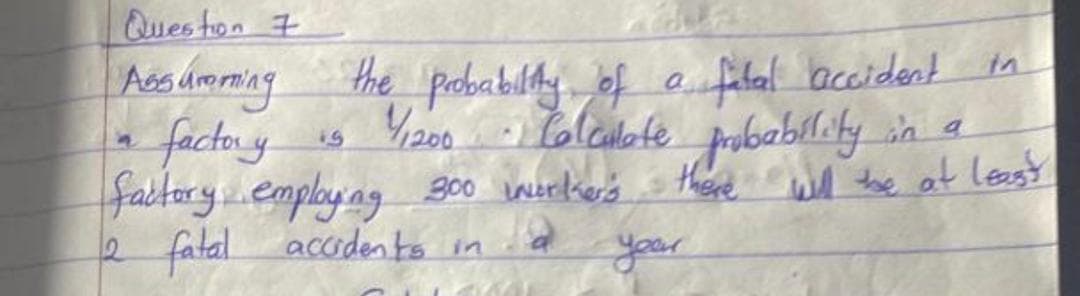 Question 7
Assumming the probability of a fatal accident in
a factory is 1/1200 . Calculate probability in a
factory employing 300 workers there will be at least
2 fatal accidents in a year